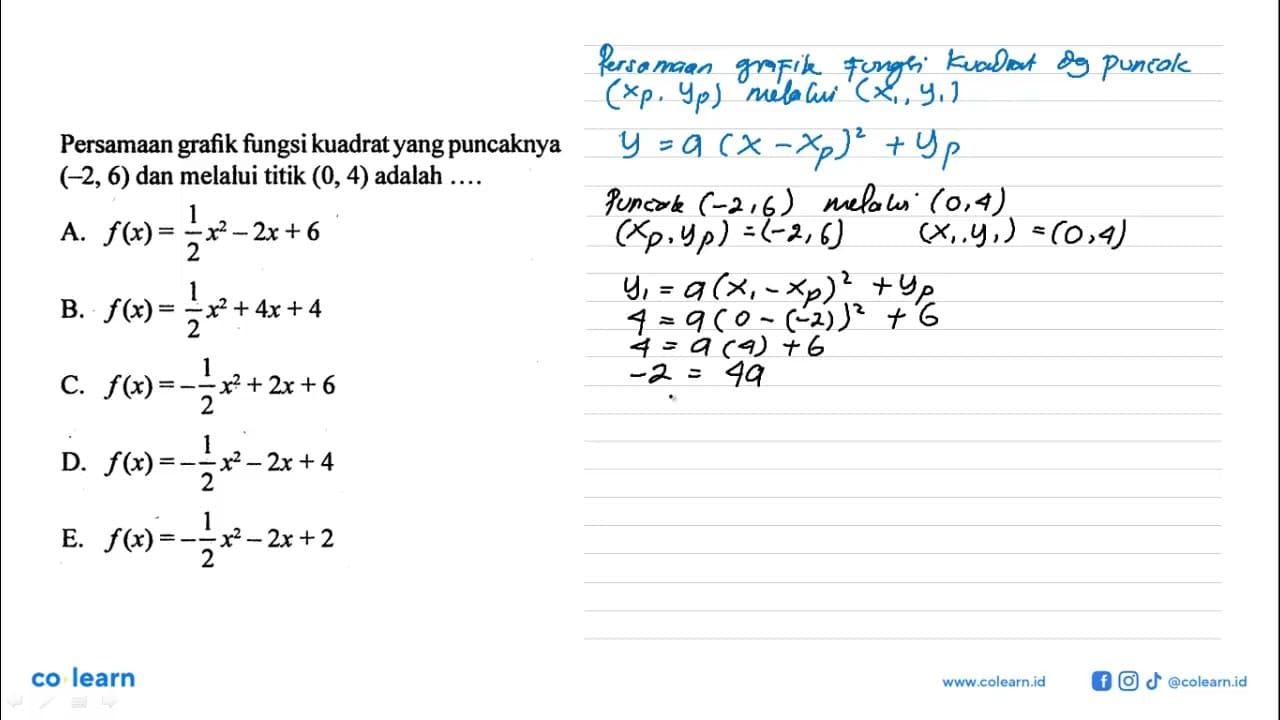 Persamaan grafik fungsi kuadrat yang puncaknya
(–2, 6) dan melalui titik (0, 4) adalah ....
A. f(x) = 1/2 x² – 2x + 6
B. f(x) = 1/2 x² + 4x + 4
C. f(x) = –1/2 x² + 2x + 6
D. f(x) = –1/2 x² – 2x + 4
E. f(x) = –1/2 x² – 2x + 2
Persamaan grafik fungsi kuadrat dg puncak
(xp, yp) melalui (x₁, y₁)
y = a (x – xp)² + yp
Puncak (-2,6) melalui (0,4)
(xp, yp) = (-2,6) (x₁, y₁) = (0,4)
y₁ = a (x₁ – xp)² + yp
4 = a (0 – (-2))² + 6
4 = a (4) + 6
-2 = 4a
co learn
www.colearn.id
@colearn.id